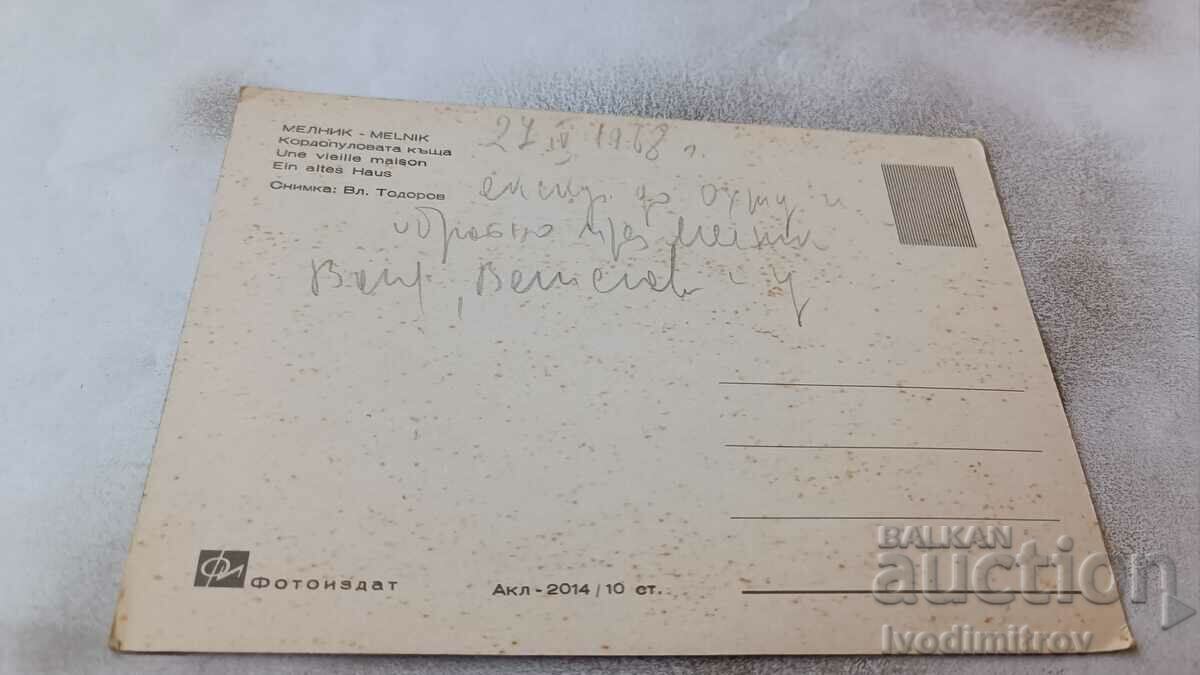 МЕЛНИК - MELNIK
Кордопуловата къща
Une vieille maison
Ein altes Haus
Снимка: Вл. Тодоров
27 IV 1968 г.
екскур. до Охрид и
обратно през Мелник
Венслав и
Фотоиздат
Акл - 2014 / 10 ст.
BALKAN
auction
Ivodimitrov